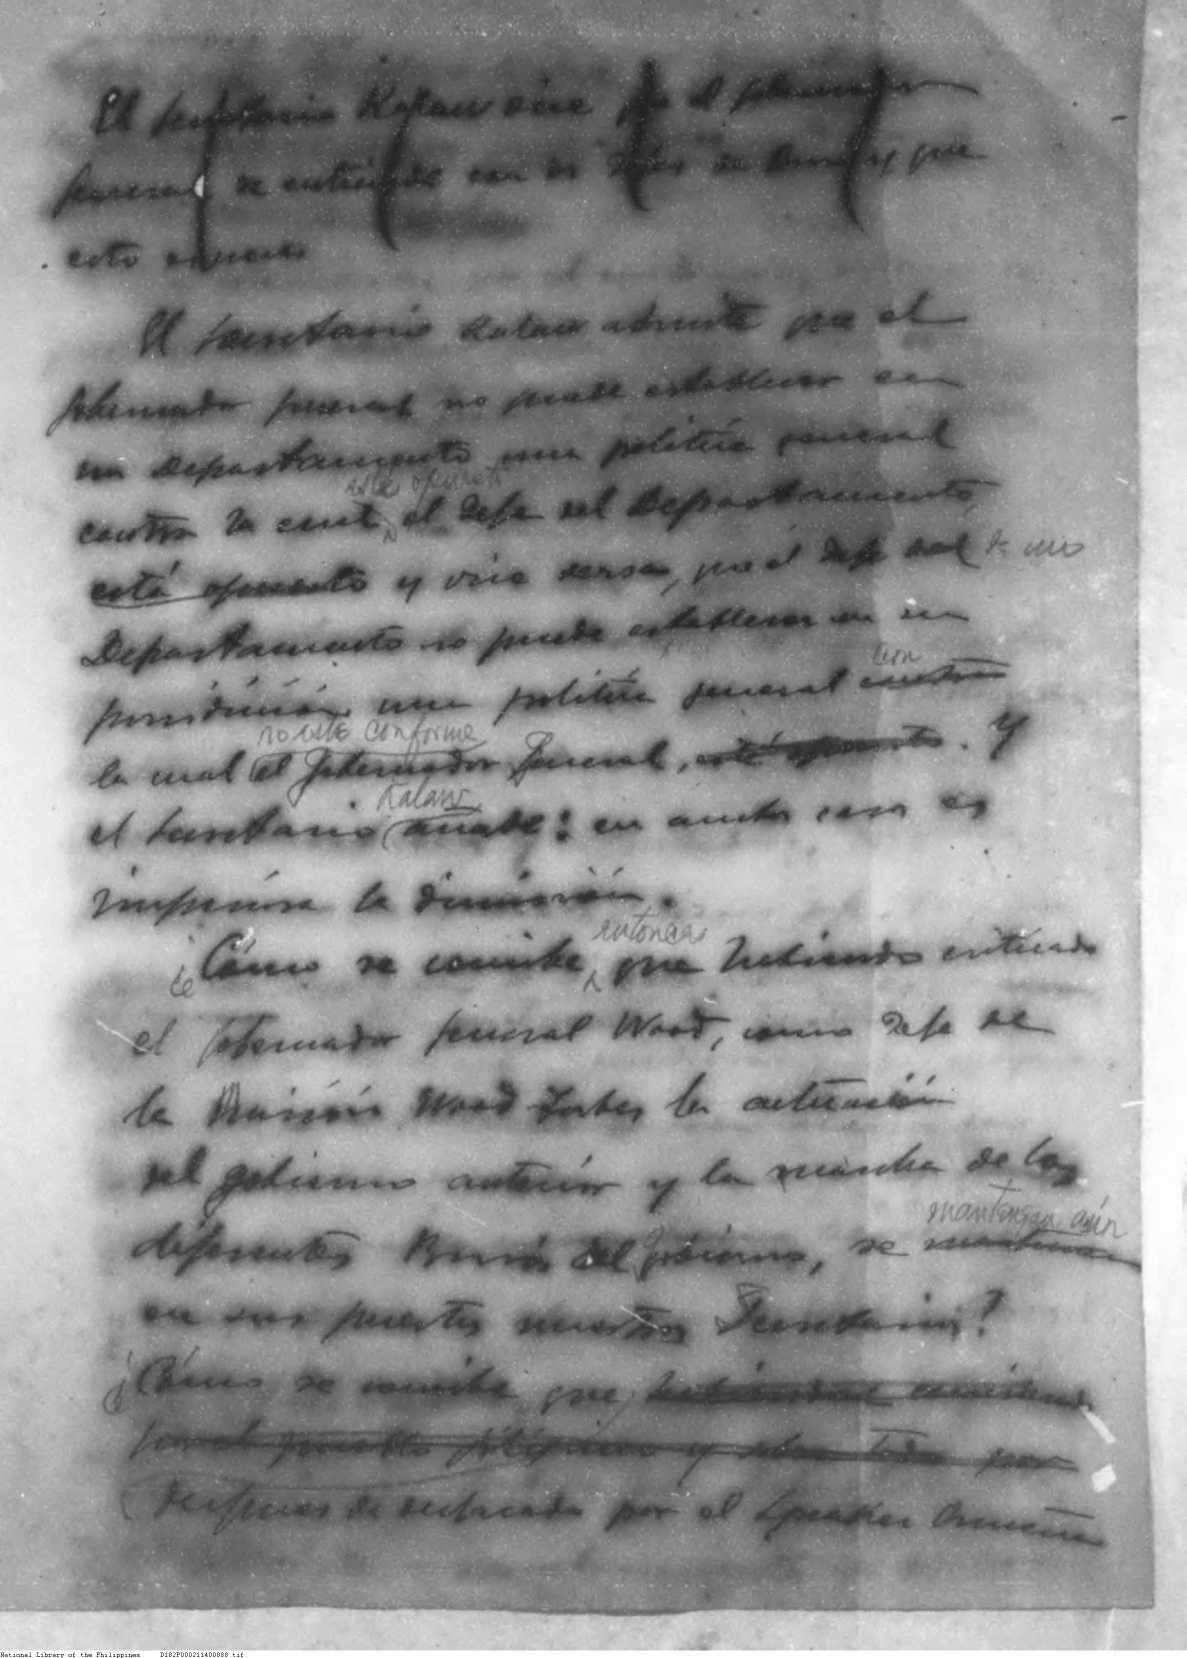 El Secretario Kalaw dice que el Gobernador
General se entiende con los Jefes de Buró y que
esto
El Secretario Kalaw admite que el
Gobernador General no puede establecer en
un Departamento una política general
esté opuesto
contra la cual el Jefe del Departamento
está opuesto y vice versa, que el Jefe del
Departamento no puede establecer en su
con
jurisdicción una política general contra
no esté conforme
la cual el Gobernador General, está opuesto. Y
Kalaw
el Secretario añade: en ambos casos es
imperiosa la dimisión.
entonces
¿Cómo se concibe que habiendo criticado
el Gobernador General Wood, como Jefe de
la Misión Wood Forbes la actuación
del gobierno anterior y la marcha de los
mantengan aún
diferentes Burós del Gobierno, se
en sus puestos nuestros Secretarios?
¿Cómo se concibe que
por el pueblo filipino y
después de declarado por el Speaker Osmeña
National Library of the Philippines D182P000211400088.tif